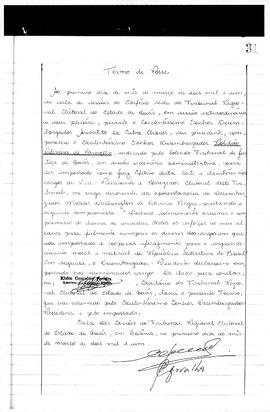 31
Termo de Posse
Ao primeiro dia do mês de março de dois mil e um,
na sala de sessões do Edifício sede do Tribunal Regio-
nal Eleitoral do Estado de Goiás, em sessão extraordinária
de seus plenário, perante o Excelentíssimo Senhor Desem-
bargador Jalles Chaves, seu presidente, com-
pareceu o Excelentíssimo Senhor Desembargador
de Carvalho, indicado pelo Colendo Tribunal de Jus-
tiça de Goiás, em sessão ordinária administrativa, para
ser empossado como Juiz Efetivo desta Corte e também nos
cargos de Vice Presidente e Corregedor Eleitoral deste Tri-
bunal, na vaga decorrente da aposentadoria do Desembar-
gador, prestando o
seguinte compromisso: "Declaro solenemente assumir o com-
promisso de honra de envidar todos os esforços ao meu al-
cance para fielmente cumprir os deveres dos cargos em que
sou empossado e cooperar eficazmente para o engrande-
cimento moral e material da República Federativa do Brasil".
Em seguida, o Desembargador Presidente declarou-o em-
possado nos mencionados cargos. Do que para constar,
eu, Secretário do Tribunal Regio-
nal Eleitoral do Estado de Goiás, lavrei o presente Termo,
que vai assinado pelo Excelentíssimo Senhor Desembargador
Presidente e pelo empossado.
Sala das Sessões do Tribunal Regional Eleitoral
do Estado de Goiás, em Goiânia, ao primeiro dia do mês
de março de dois mil e um.